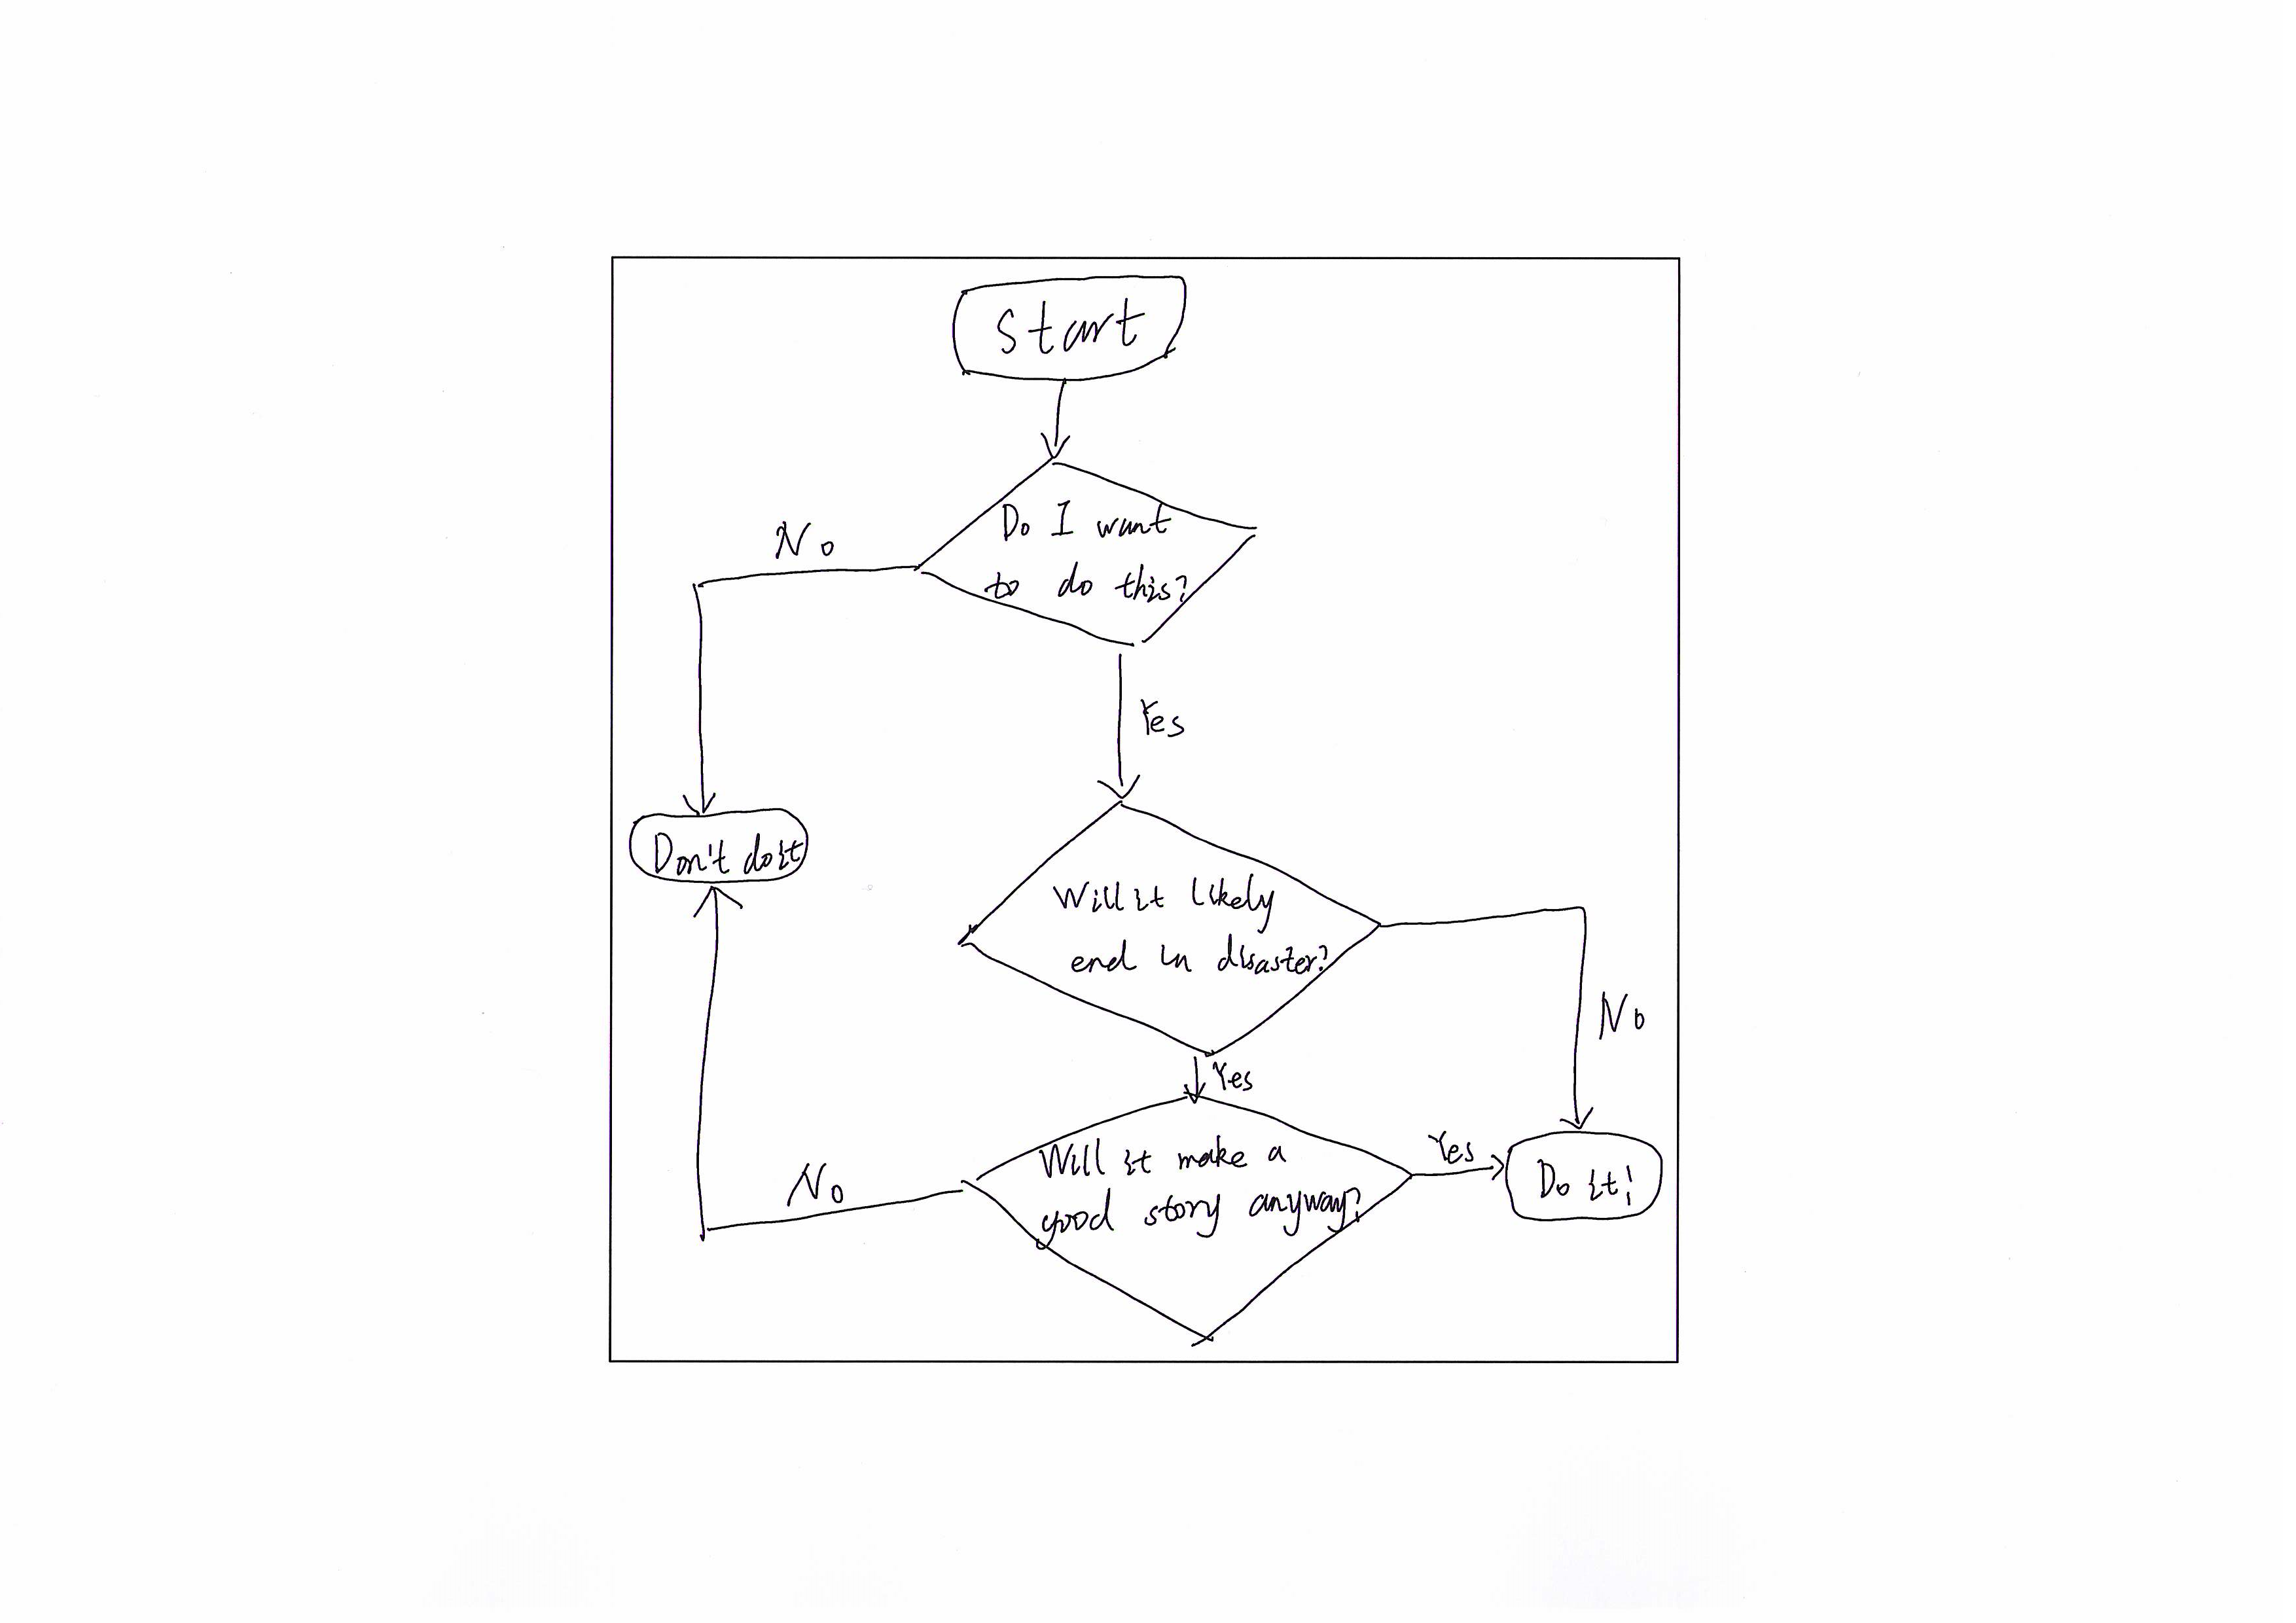 start
Do I want
to do this?
No
Yes
Don't do it
Will it likely
end in disaster?
No
Yes
Will it make a
good story anyway?
No
Yes
Do it!